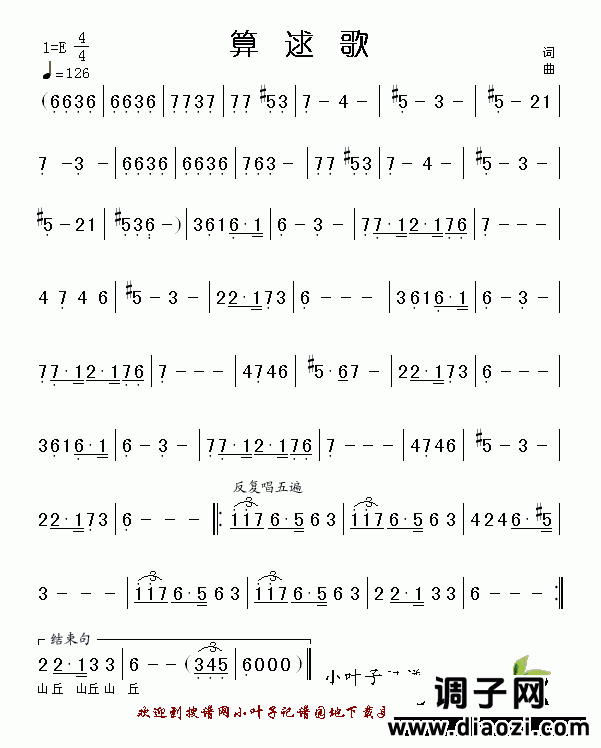 算逑歌
1=E 4/4
♩=126
词
曲
(6636|6636|7737|77#53|7-4-|#5-3-|#5-21|
7-3-|6636|6636|763-|77#53|7-4-|#5-3-|
#5-21|#536-)|3616·1|6-3-|77·12·176|7---|
4746|#5-3-|22·173|6---|3616·1|6-3-|
77·12·176|7---|4746|#5·67-|22·173|6---|
3616·1|6-3-|77·12·176|7---|4746|#5-3-|
反复唱五遍
22·173|6--- ‖:1176·563|1176·563|4246·#5|
3---|1176·563|1176·563|22·133|6---:‖
结束句
22·133|6--(345|6000)‖
山丘 山丘山 丘
小叶子
欢迎到搜谱网小叶子记谱园地下载
调子网
www.diaozi.com